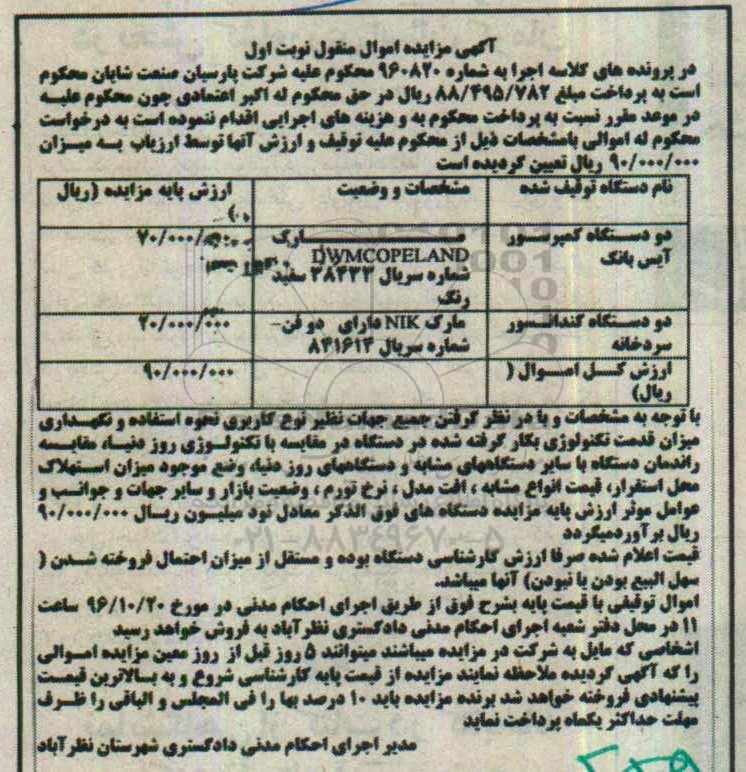 آگهی مزایده اموال منقول نوبت اول
در پرونده های کلاسه اجرا به شماره ۹۶۰۸۲۰ محکوم علیه شرکت پارسیان صنعت شایان محکوم
است به پرداخت مبلغ ۸۸/۴۹۵/۷۸۲ ریال در حق محکوم له اکبر اعتمادی چون محکوم علیه
در موعد مقرر نسبت به پرداخت محکوم به و هزینه های اجرایی اقدام ننموده است به درخواست
محکوم له اموالی بامشخصات ذیل از محکوم علیه توقیف و ارزش آنها توسط ارزیاب به میزان
۹۰/۰۰۰/۰۰۰ ریال تعیین گردیده است
نام دستگاه توقیف شده
مشخصات و وضعیت
ارزش پایه مزایده (ریال
)
دو دستگاه کمپرسور
آیس بانک
مارک
DWMCOPELAND
شماره سریال ۳۸۴۳۳ سفید
رنگ
۷۰/۰۰۰/۰۰۰
دو دستگاه کندانسور
سردخانه
مارک NIK دارای دو فن-
شماره سریال ۸۴۱۶۱۴
۲۰/۰۰۰/۰۰۰
ارزش کل اموال (
ریال)
۹۰/۰۰۰/۰۰۰
با توجه به مشخصات و با در نظر گرفتن جمیع جهات نظیر نوع کاربری نحوه استفاده و نگهداری
میزان قدمت تکنولوژی بکار گرفته شده در دستگاه در مقایسه با تکنولوژی روز دنیا، مقایسه
راندمان دستگاه با سایر دستگاههای مشابه و دستگاههای روز دنیا، وضع موجود میزان استهلاک
محل استقرار، قیمت انواع مشابه ، افت مدل ، نرخ تورم ، وضعیت بازار و سایر جهات و جوانب و
عوامل موثر ارزش پایه مزایده دستگاه های فوق الذکر معادل نود میلیون ریال ۹۰/۰۰۰/۰۰۰
ریال برآوردمیگردد
قیمت اعلام شده صرفا ارزش کارشناسی دستگاه بوده و مستقل از میزان احتمال فروخته شدن (
سهل البیع بودن یا نبودن) آنها میباشد.
اموال توقیفی با قیمت پایه بشرح فوق از طریق اجرای احکام مدنی در مورخ ۹۶/۱۰/۲۰ ساعت
۱۱ در محل دفتر شعبه اجرای احکام مدنی دادگستری نظرآباد به فروش خواهد رسید
اشخاصی که مایل به شرکت در مزایده میباشند میتوانند ۵ روز قبل از روز معین مزایده اموالی
را که آگهی گردیده ملاحظه نمایند مزایده از قیمت پایه کارشناسی شروع و به بالاترین قیمت
پیشنهادی فروخته خواهد شد برنده مزایده باید ۱۰ درصد بها را فی المجلس و الباقی را ظرف
مهلت حداکثر یکماه پرداخت نماید
مدیر اجرای احکام مدنی دادگستری شهرستان نظرآباد
۰۲۱-۸۸۳۴۹۶۷۰-۵